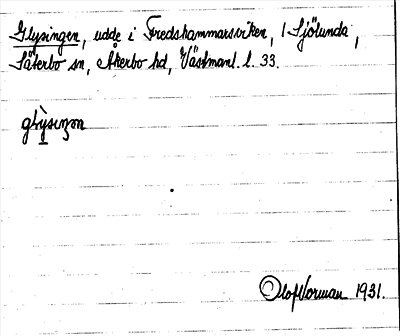 Glysingen, udde i Fredshammarsviken, 1 Sjölunda,
Säterbo sn, Åkerbo hd, Västmanl. l. 33.
glỳsıŋən
Olof Norman 1931.